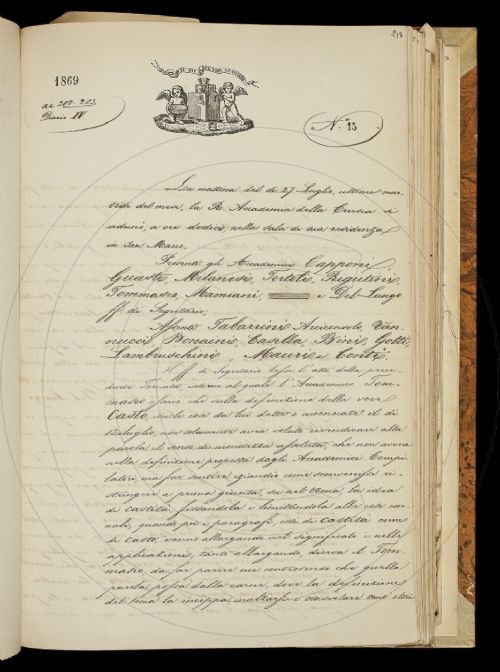 248
1869
ac. 202-203
Diario IV
N.° 15
La mattina del dì 27 Luglio, ultimo mar-
tedì del mese, la R. Accademia della Crusca si
adunò, a ore dodici, nella sala di sua residenza
in San Marco.
Presenti gli Accademici Capponi,
Guasti, Milanesi, Tortoli, Rigutini,
Tommaseo, Mamiani, e Del Lungo
ff. di Segretario;
Assenti Tabarrini Arciconsolo, Van-
nucci, Bonaini, Casella, Bini, Gotti,
Lambruschini, Mauri e Conti.
Il ff. di Segretario lesse l'atto della prece-
dente Tornata, intorno al quale l'Accademico Tom-
maseo che sulla definizione della voce
Casto, con la cosa da lui detta o accennata il dì
13 luglio, non solamente avea voluto rivendicare alla
parola il senso di mondezza assoluta, che non aveva
nella definizione proposta dagli Accademici Compi-
latori, ma far sentire eziandio come sconvenisse ri-
stringere a prima giunta, su nel tema, la idea
di castità, fissandola e limitandola alle cose car-
nali, quando poi i paragrafi, così di Castità come
di Casto, vanno allargando nel significato e nelle
applicazioni, tanto allargando, diceva il Tom-
maseo, da far parere un controsenso che quella
parola possa dalla carne, dove la definizione
del tema la inceppa, inalzarsi e